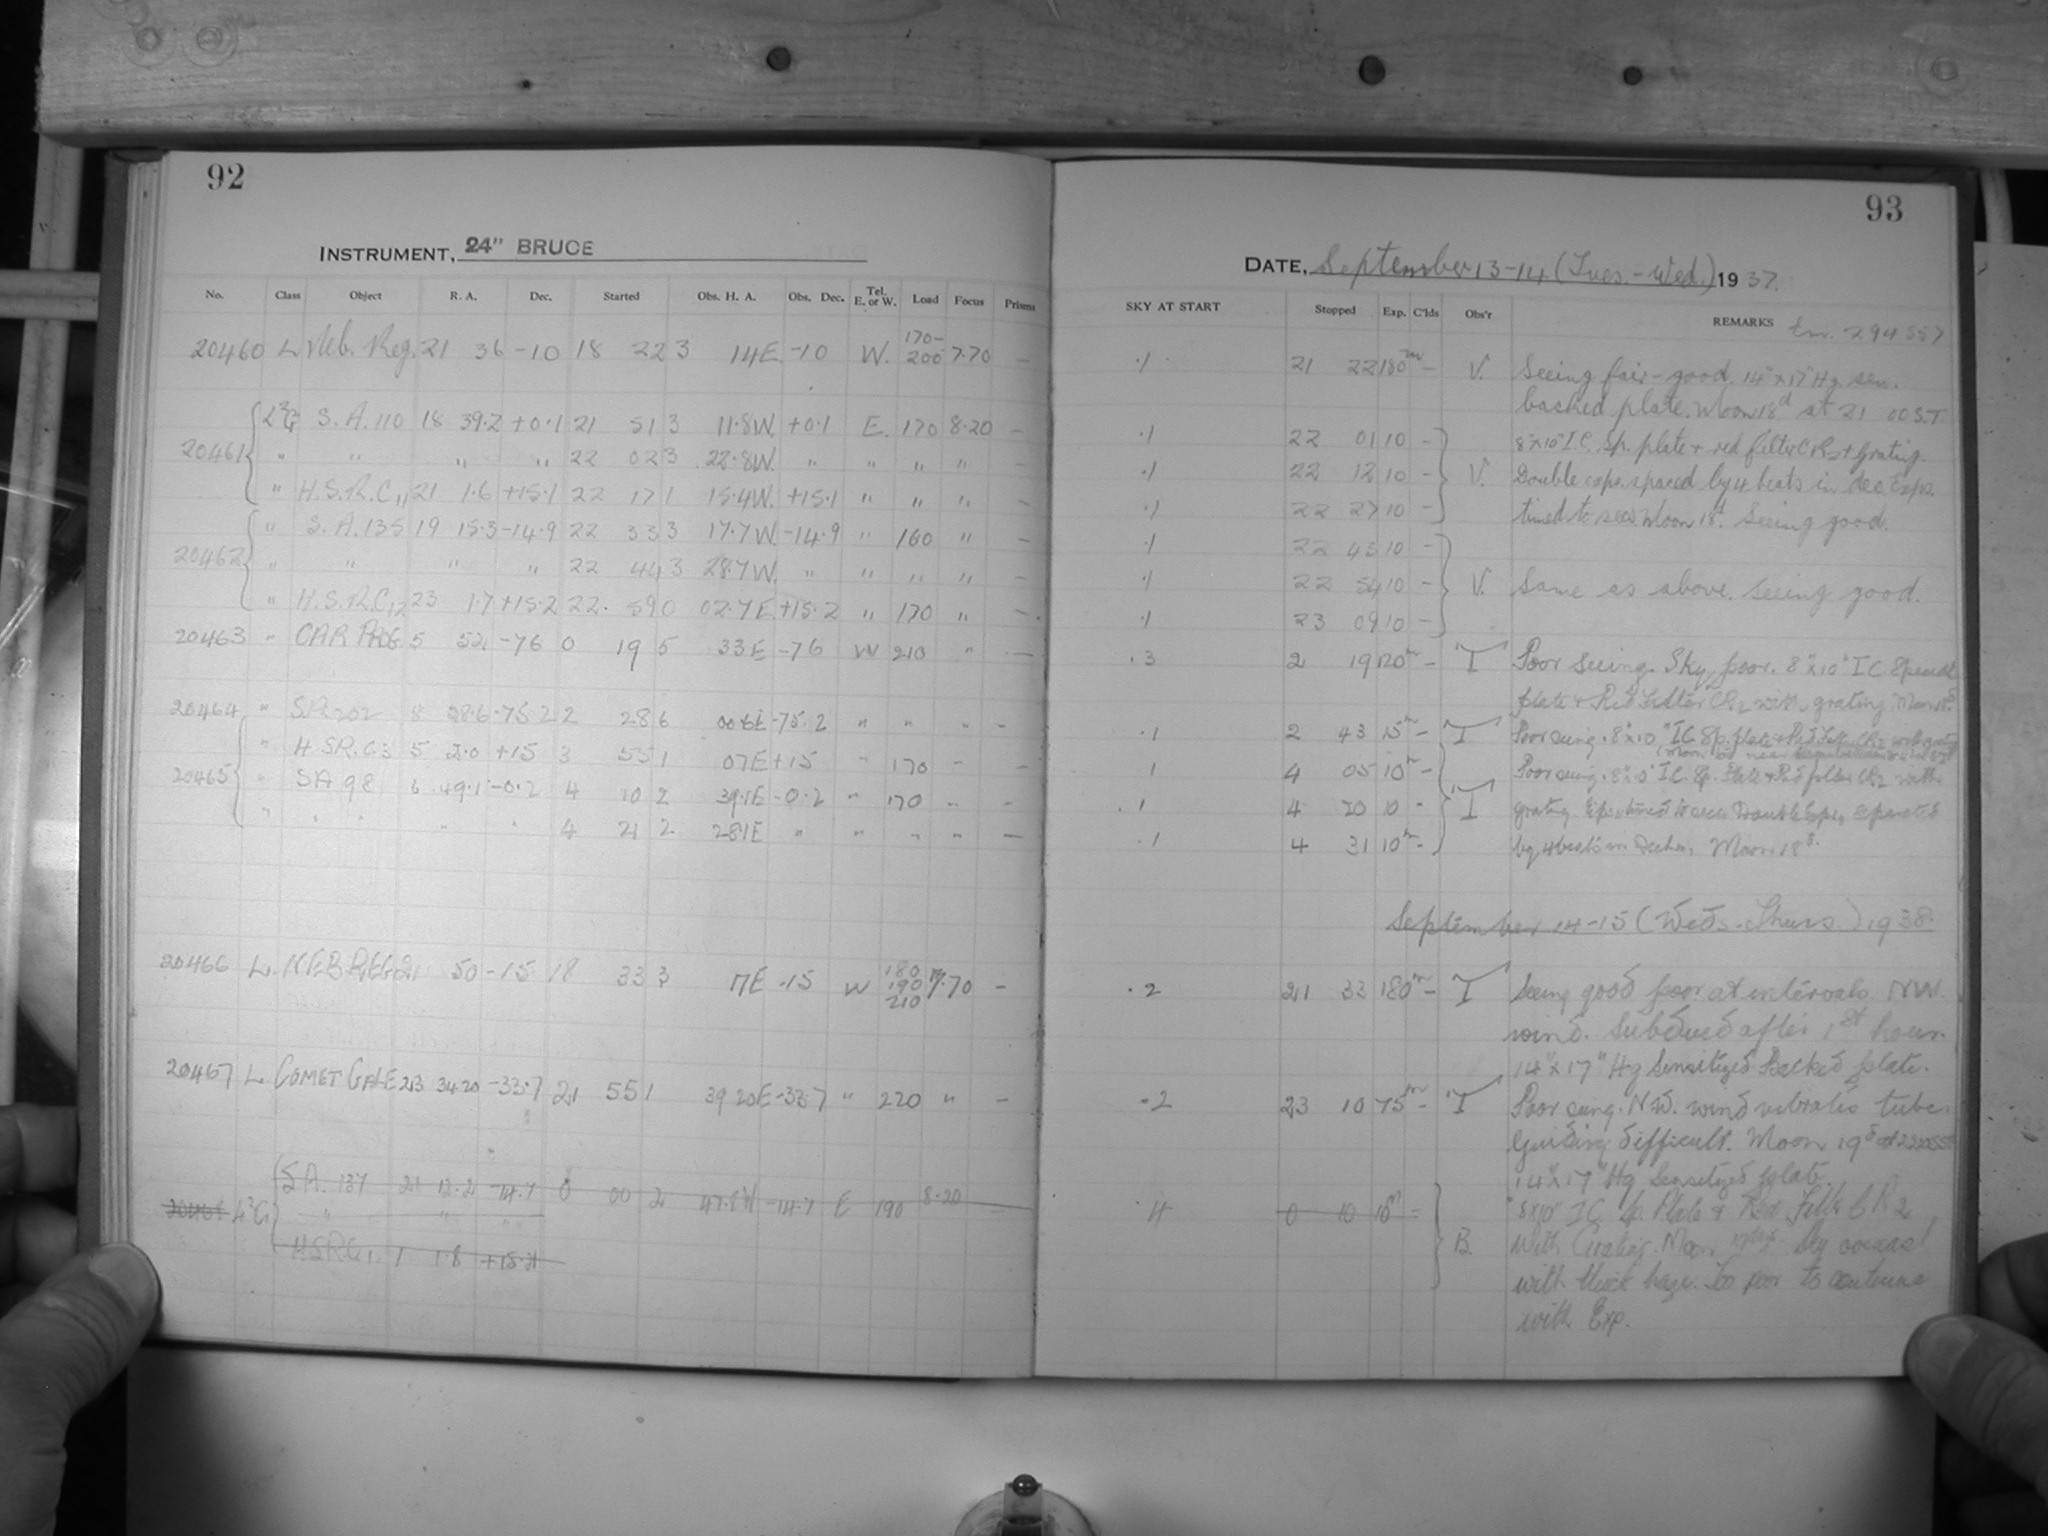 92
INSTRUMENT, 24" BRUCE
No. Class Object R. A. Dec. Started Obs. H. A. Obs. Dec. Tel. E. or W. Load Focus Prisms
20460 L Neb. Reg. 21 36 -10 18 22 3 14E -10 W. 170-200 7.70 —
20461 S.A. 110 18 39.2 +0.1 21 51 3 11.8W. +0.1 E. 170 8.20 —
" " " " 22 02 3 22.8W. " " " " —
" H.S.R.C 11 21 1.6 +15.1 22 17 1 15.4W. +15.1 " " " —
20462 " S.A. 135 19 15.3 -14.9 22 33 3 17.7W. -14.9 " 160 " —
" " " " 22 44 3 28.7W. " " " " —
" H.S.R.C 12 23 1.7 +15.2 22 59 0 02.7E +15.2 " 170 " —
20463 " CAR PROG. 5 52 -76 0 19 5 33E -76 W 210 " —
20464 " 8 28.6 -75.2 2 28 6 -75.2 " " " —
20465 " H.S.R.C 3 5 2.0 +15 3 55 1 07E +15 " 170 " —
" SA 98 6 49.1 -0.2 4 10 2 39.1E -0.2 " 170 " —
" " " " " 4 21 2 28.1E " " " " —
20466 L NEB REG 21 50 -15 18 33 3 17E -15 W 180 190 210 7.70 —
20467 L COMET GALE 23 34 20 -33.7 21 55 1 39 20E -33.7 " 220 " —
20468 S.A. 137 21 12.2 -14.7 0 00 2 47.8W -14.7 E 190 8.20 —
" " "
HSRC 1 1 1.8 +15.2
93
DATE, September 13-14 (Tues.-Wed.) 1937.
SKY AT START Stopped Exp. C'lds Obs'r REMARKS
.1 21 22 180m — V. Seeing fair-good. 14"x17" Hg. sen.
backed plate. Moon 18d at 21 00 S.T
.1 22 01 10 — 8"x10" I.C. Sp. plate + red filter CR2 + grating.
.1 22 12 10 — V. Double exps. spaced by 4 beats in dec. Exps.
.1 22 27 10 — timed to secs. Moon 18d. Seeing good.
.1 22 43 10 —
.1 22 54 10 — V. Same as above. Seeing good.
.1 23 09 10 —
.3 2 19 120m — T Poor Seeing. Sky poor. 8"x10" I C Special
plate & Red Filter CR2 with grating. Moon
.1 2 43 15m — T Poor seeing. 8"x10" IC Sp. plate & Red Filt. CR2 with
.1 4 05 10m — Poor seeing. 8"x10" IC Sp. Plate & Red filter CR2 with
.1 4 20 10 — T grating. Exps. timed to secs. Double Exps. separated
.1 4 31 10m — by 4 beats in Declin. Moon 18d.
September 14-15 (Weds.-Thurs.) 1938.
.2 21 33 180m — T Seeing good poor at intervals. NW.
wind. Subdued after 1st hour.
14"x17" Hg Sensitized Backed plate.
.2 23 10 75m — T Poor seeing. N.W. wind vibrates tube.
Guiding difficult. Moon 19d at
14"x17" Hg Sensitized plate.
.4 0 10 10m — 8x10" IC Sp. Plate & Red Filter CR2
B. With Grating. Moon Sky covered
with thick haze. Too poor to continue
with Exp.